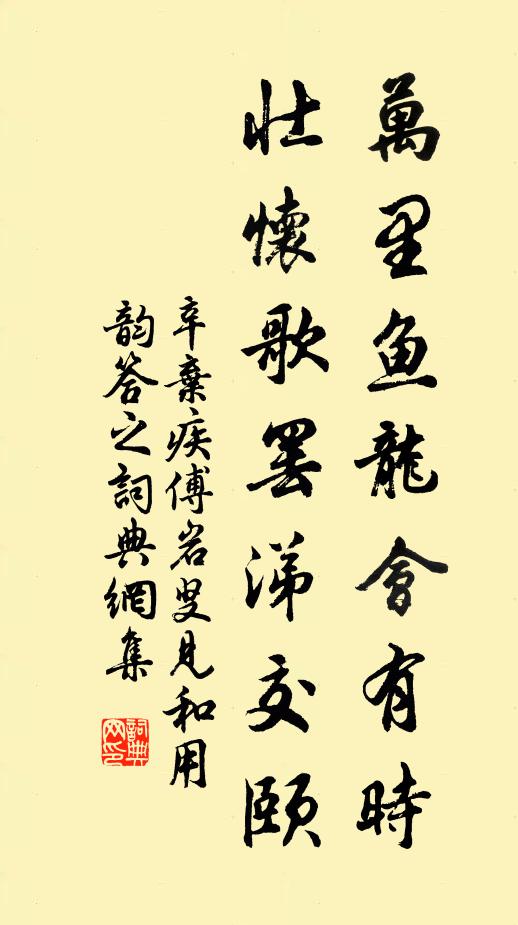 萬里魚龍會有時
壯懷歌罷涕交頤
辛棄疾傅岩叟見和用
韵答之詞典網集
詞典網印